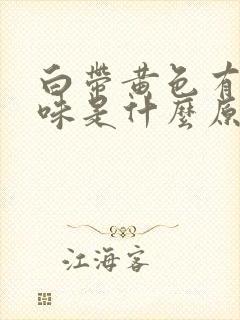 白带黄色有
味是什麼原
江海客